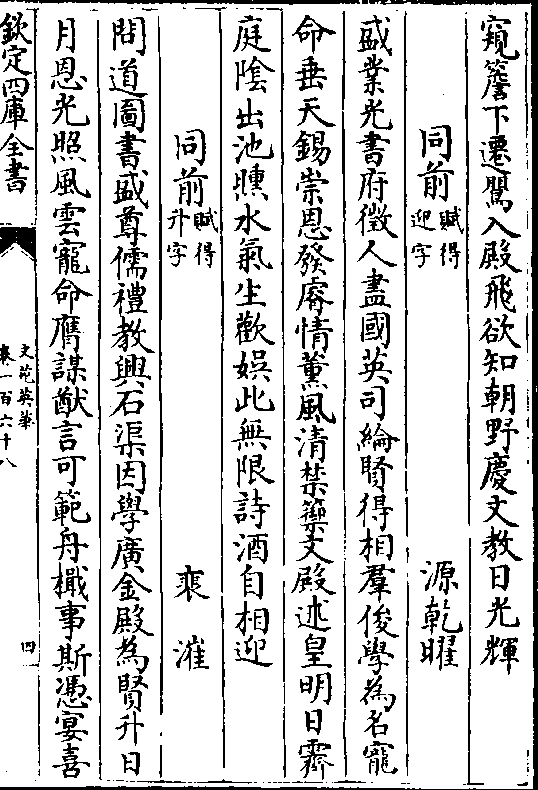 窺簷下遷鶯入殿飛欲知朝野慶文教日光輝
同前賦得迎字 源乾曜
盛業光書府徵人盡國英司綸賢得相羣俊學為名寵
命垂天錫崇恩發睿情薰風清禁籞文殿述皇明日霽
庭陰出池曛水氣生歡娛此無限詩酒自相迎
同前賦得升字 裴漼
問道圖書盛尊儒禮教興石渠因學廣金殿為賢升日
月恩光照風雲寵命膺謀猷言可範舟檝事斯憑宴喜
欽定四庫全書
文苑英華
卷一百六十八
四